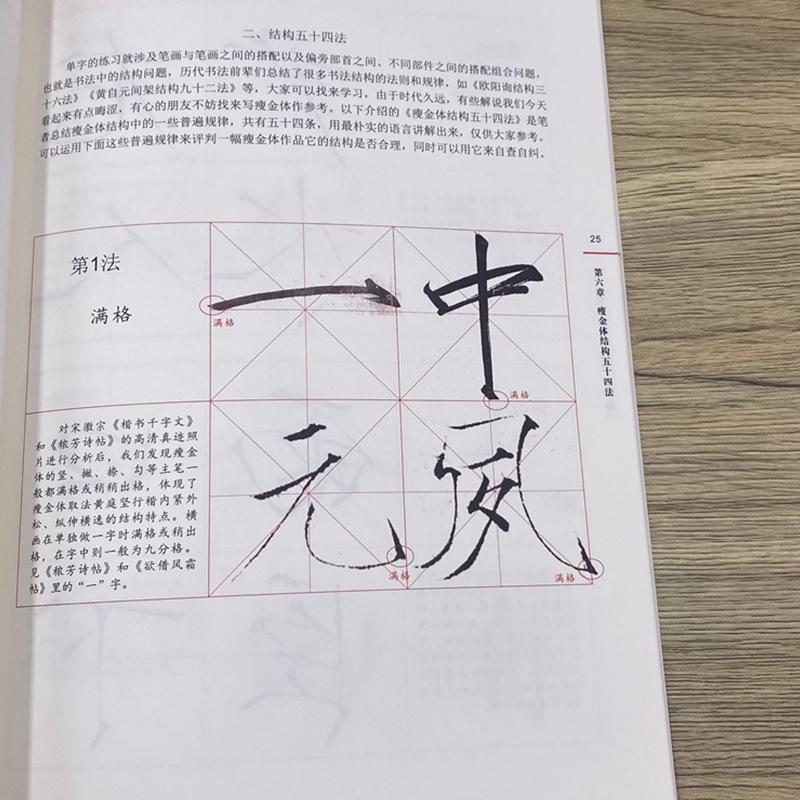 二、结构五十四法
单字的练习就涉及笔画与笔画之间的搭配以及偏旁部首之间、不同部件之间的搭配组合问题，
也就是书法中的结构问题，历代书法前辈们总结了很多书法结构的法则和规律，如《欧阳询结构三
十六法》《黄自元间架结构九十二法》等，大家可以找来学习，由于时代久远，有些解说我们今天
看起来有点晦涩，有心的朋友不妨找来写瘦金体作参考。以下介绍的《瘦金体结构五十四法》是笔
者总结瘦金体结构中的一些普遍规律，共有五十四条，用最朴实的语言讲解出来，仅供大家参考。
可以运用下面这些普遍规律来评判一幅瘦金体作品它的结构是否合理，同时可以用它来自查自纠。
25
第六章 瘦金体结构五十四法
第1法
满格
一
满格
中
满格
对宋徽宗《楷书千字文》
和《秾芳诗帖》的高清真迹照
片进行分析后，我们发现瘦金
体的竖、撇、捺、勾等主笔一
般都满格或稍稍出格，体现了
瘦金体取法黄庭坚行楷内紧外
松、纵伸横逸的结构特点。横
画在单独做一字时满格或稍出
格，在字中则一般为九分格。
见《秾芳诗帖》和《欲借风霜
帖》里的“一”字。
元
满格
风
满格